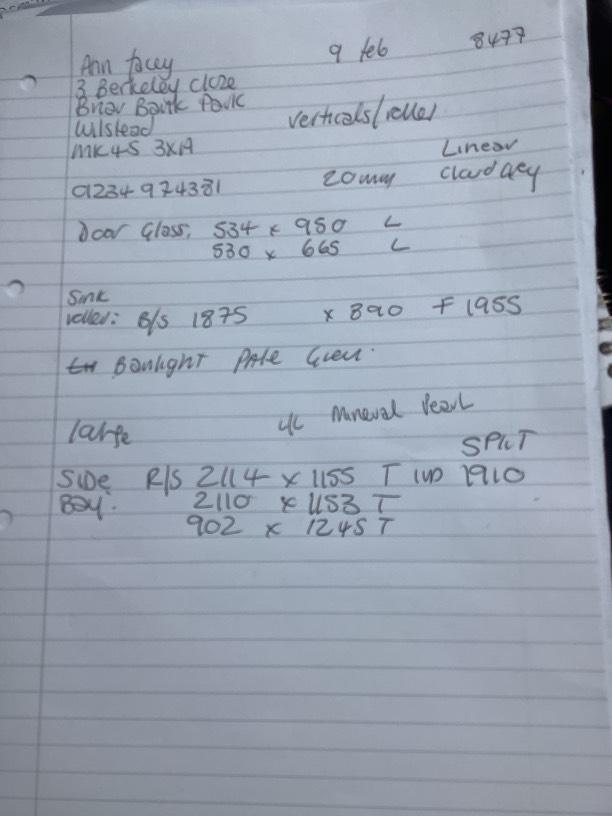 Ann facey 9 feb 8477
3 Berkeley Close
Briar Bank Park
Wilstead verticals/roller
MK45 3XA Linear
01234 974381 20mm Cloud Grey
Door Glass, 534 x 950 L
530 x 665 L
Sink
roller: B/S 1875 x 890 F 1955
Banlight Pale Green.
large Mineral Pearl
SPLIT
Side R/S 2114 x 1155 T 1910
Bay. 2110 x 1153 T
902 x 1245 T